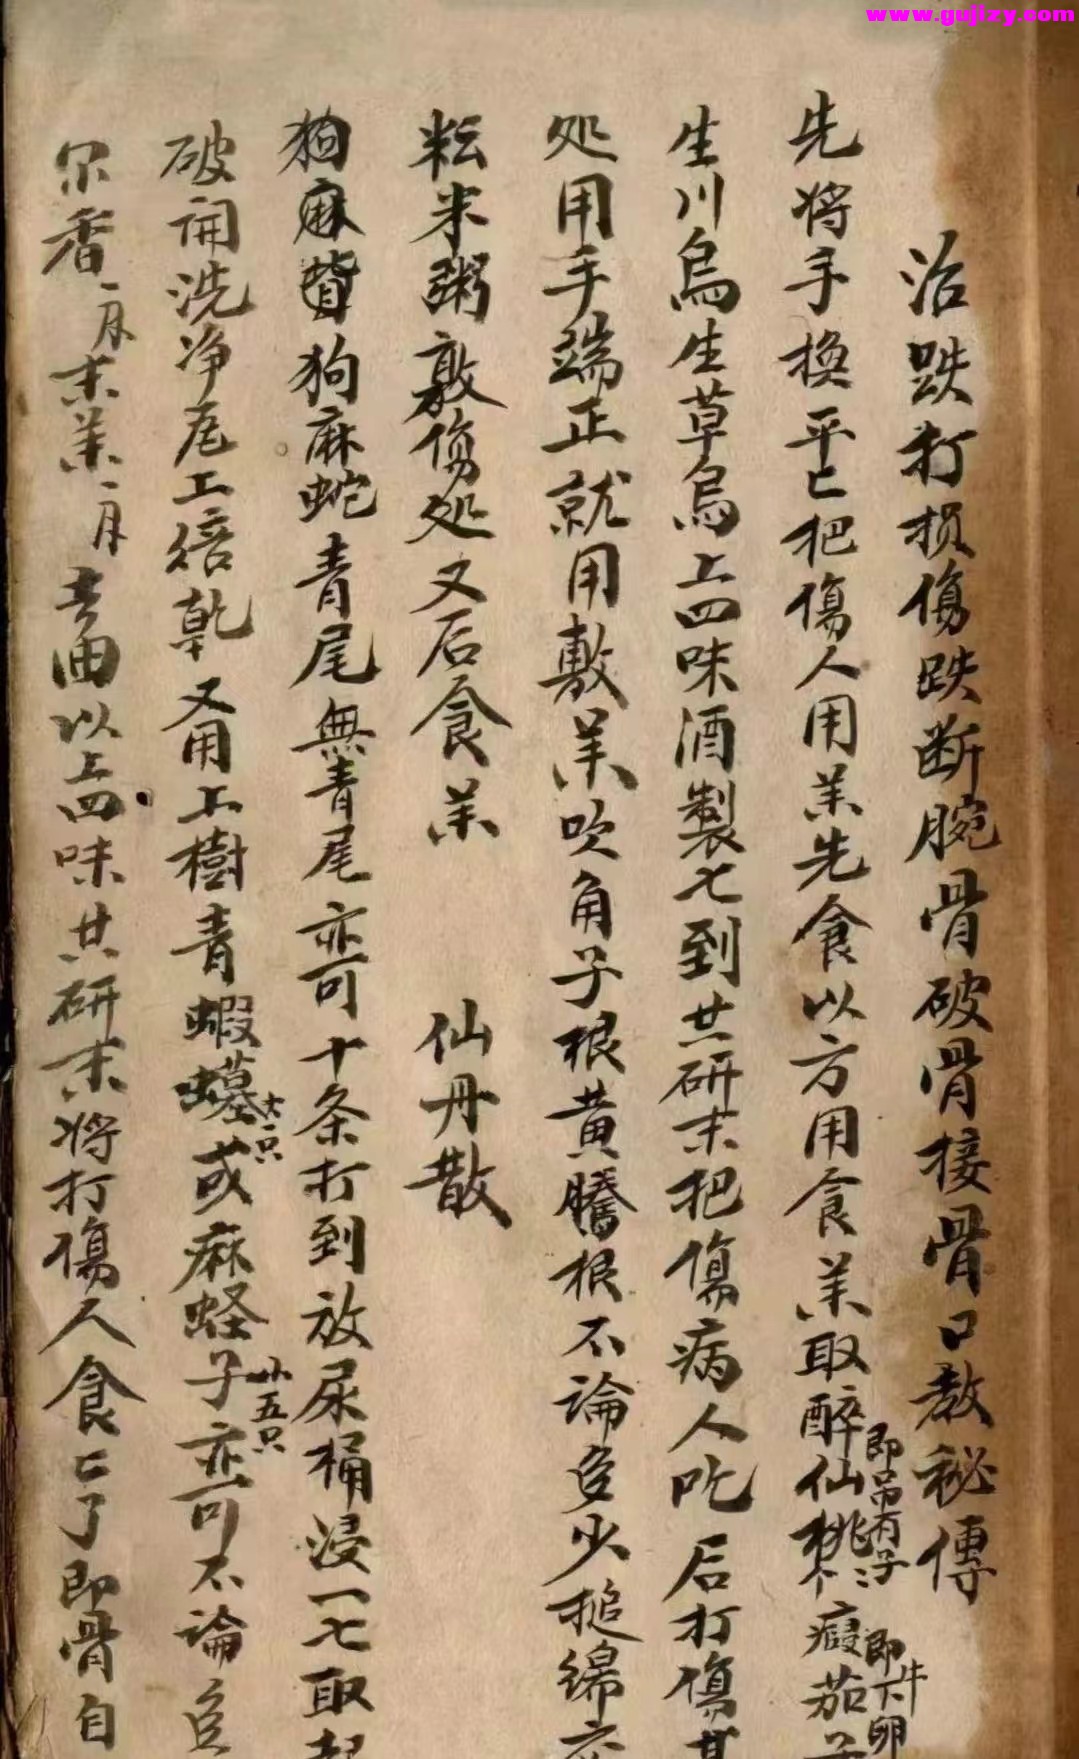 www.gujizy.com
治跌打損傷跌断腕骨破骨接骨口教秘傳
先將手換平已把傷人用羔先食以方用食羔取醉仙桃即吊有子癍茄子即牛卵
生川烏生草烏上四味酒製七到共研末把傷病人吃后打傷其
処用手端正就用敷羔吹角子根黄騰根不論多少搥綿
粘米粥敷傷处又后食羔　仙丹散
狗麻蛇青尾無青尾亦可十条打到放尿桶浸一七取起
破開洗净瓦上焙乾又用上樹青蝦蟆大一只或麻蛏子廿五只亦可不論多
尔香二月末羔二月吉由以上四味共研末將打傷人食亡了即骨自